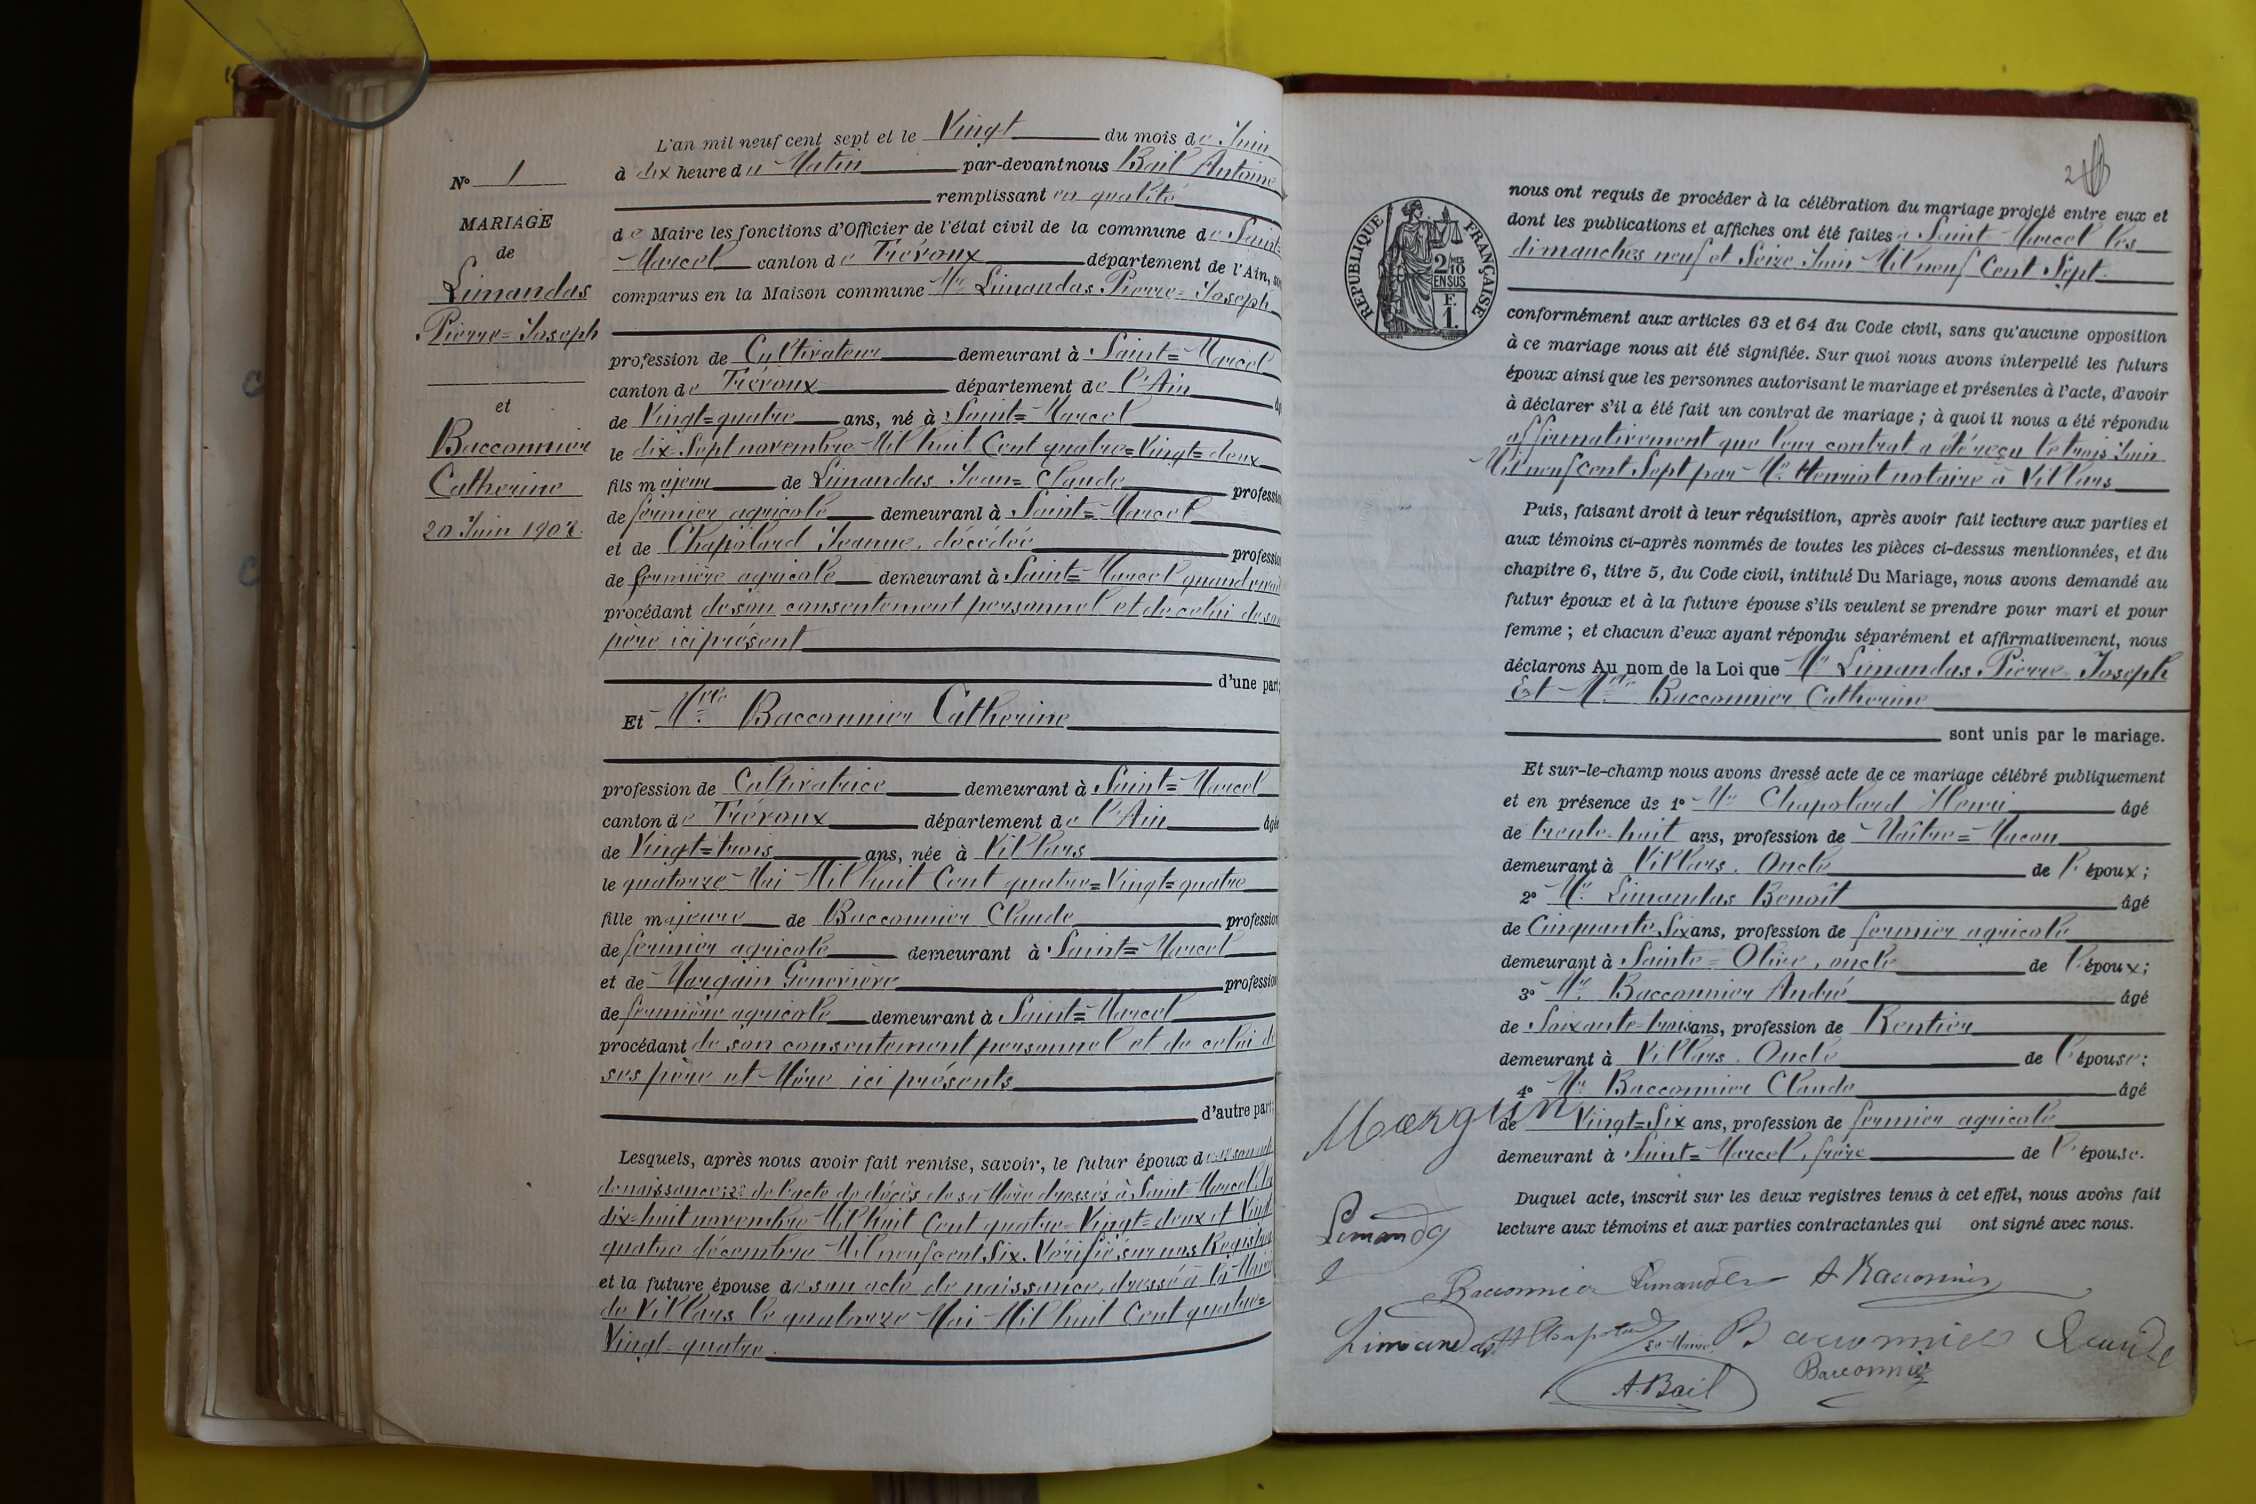 N° 1
MARIAGE
de
Limandas
Pierre=Joseph
et
Bacconnier
Catherine
20 Juin 1907.
L'an mil neuf cent sept et le Vingt du mois de Juin
à dix heure du Matin par-devant nous Bail Antoine
remplissant en qualité
de Maire les fonctions d'Officier de l'état civil de la commune de Saint=
Marcel canton de Trévoux département de l'Ain, sont
comparus en la Maison commune Mr Limandas Pierre=Joseph
profession de Cultivateur demeurant à Saint=Marcel
canton de Trévoux département de l'Ain âgé
de Vingt=quatre ans, né à Saint=Marcel
le dix-Sept novembre Mil huit Cent quatre=Vingt=deux
fils majeur de Limandas Jean=Claude profession
de fermier agricole demeurant à Saint=Marcel
et de Chapolard Jeanne, décédée profession
de fermière agricole demeurant à Saint=Marcel quand vivait
procédant de son consentement personnel et de celui de son
père ici présent
d'une part;
Et Mlle Bacconnier Catherine
profession de Cultivatrice demeurant à Saint=Marcel
canton de Trévoux département de l'Ain âgée
de Vingt=trois ans, née à Villars
le quatorze Mai Mil huit Cent quatre=Vingt=quatre
fille majeure de Bacconnier Claude profession
de fermier agricole demeurant à Saint=Marcel
et de Margain Geneviève profession
de fermière agricole demeurant à Saint=Marcel
procédant de son consentement personnel et de celui de
ses père et Mère ici présents
d'autre part;
Lesquels, après nous avoir fait remise, savoir, le futur époux de
de naissance; 2° de l'acte de décès de sa Mère dressés à Saint-Marcel les
dix-huit novembre Mil huit Cent quatre=Vingt=deux et Vingt
quatre décembre Mil neuf cent Six. Vérifié sur nos Registres
et la future épouse de son acte de naissance, dressé à la Mairie
de Villars le quatorze Mai Mil huit Cent quatre=
Vingt-quatre.
RÉPUBLIQUE FRANÇAISE
2/10
EN SUS
F.
1.
nous ont requis de procéder à la célébration du mariage projeté entre eux et
dont les publications et affiches ont été faites à Saint Marcel les
dimanches neuf et Seize Juin Mil neuf Cent Sept.
conformément aux articles 63 et 64 du Code civil, sans qu'aucune opposition
à ce mariage nous ait été signifiée. Sur quoi nous avons interpellé les futurs
époux ainsi que les personnes autorisant le mariage et présentes à l'acte, d'avoir
à déclarer s'il a été fait un contrat de mariage; à quoi il nous a été répondu
affirmativement que leur contrat a été reçu le trois Juin
Mil neuf cent Sept par Me Henriot notaire à Villars
Puis, faisant droit à leur réquisition, après avoir fait lecture aux parties et
aux témoins ci-après nommés de toutes les pièces ci-dessus mentionnées, et du
chapitre 6, titre 5, du Code civil, intitulé Du Mariage, nous avons demandé au
futur époux et à la future épouse s'ils veulent se prendre pour mari et pour
femme; et chacun d'eux ayant répondu séparément et affirmativement, nous
déclarons Au nom de la Loi que Mr Limandas Pierre Joseph
Et Mlle Bacconnier Catherine
sont unis par le mariage.
Et sur-le-champ nous avons dressé acte de ce mariage célébré publiquement
et en présence de 1° Mr Chapolard Henri âgé
de trente-huit ans, profession de Maître=Maçon
demeurant à Villars. Oncle de l'époux;
2° Mr Limandas Benoît âgé
de Cinquante Six ans, profession de fermier agricole
demeurant à Sainte=Olive, oncle de l'époux;
3° Mr Bacconnier André âgé
de Soixante-trois ans, profession de Rentier
demeurant à Villars. Oncle de l'épouse;
4° Mr Bacconnier Claude âgé
de Vingt=Six ans, profession de fermier agricole
demeurant à Saint=Marcel, frère de l'épouse.
Duquel acte, inscrit sur les deux registres tenus à cet effet, nous avons fait
lecture aux témoins et aux parties contractantes qui ont signé avec nous.
Margain
Limandas
Bacconnier Limandas A. Bacconnier
Limandas H Chapolard Le Maire Bacconnier Claude
A. Bail Bacconnier